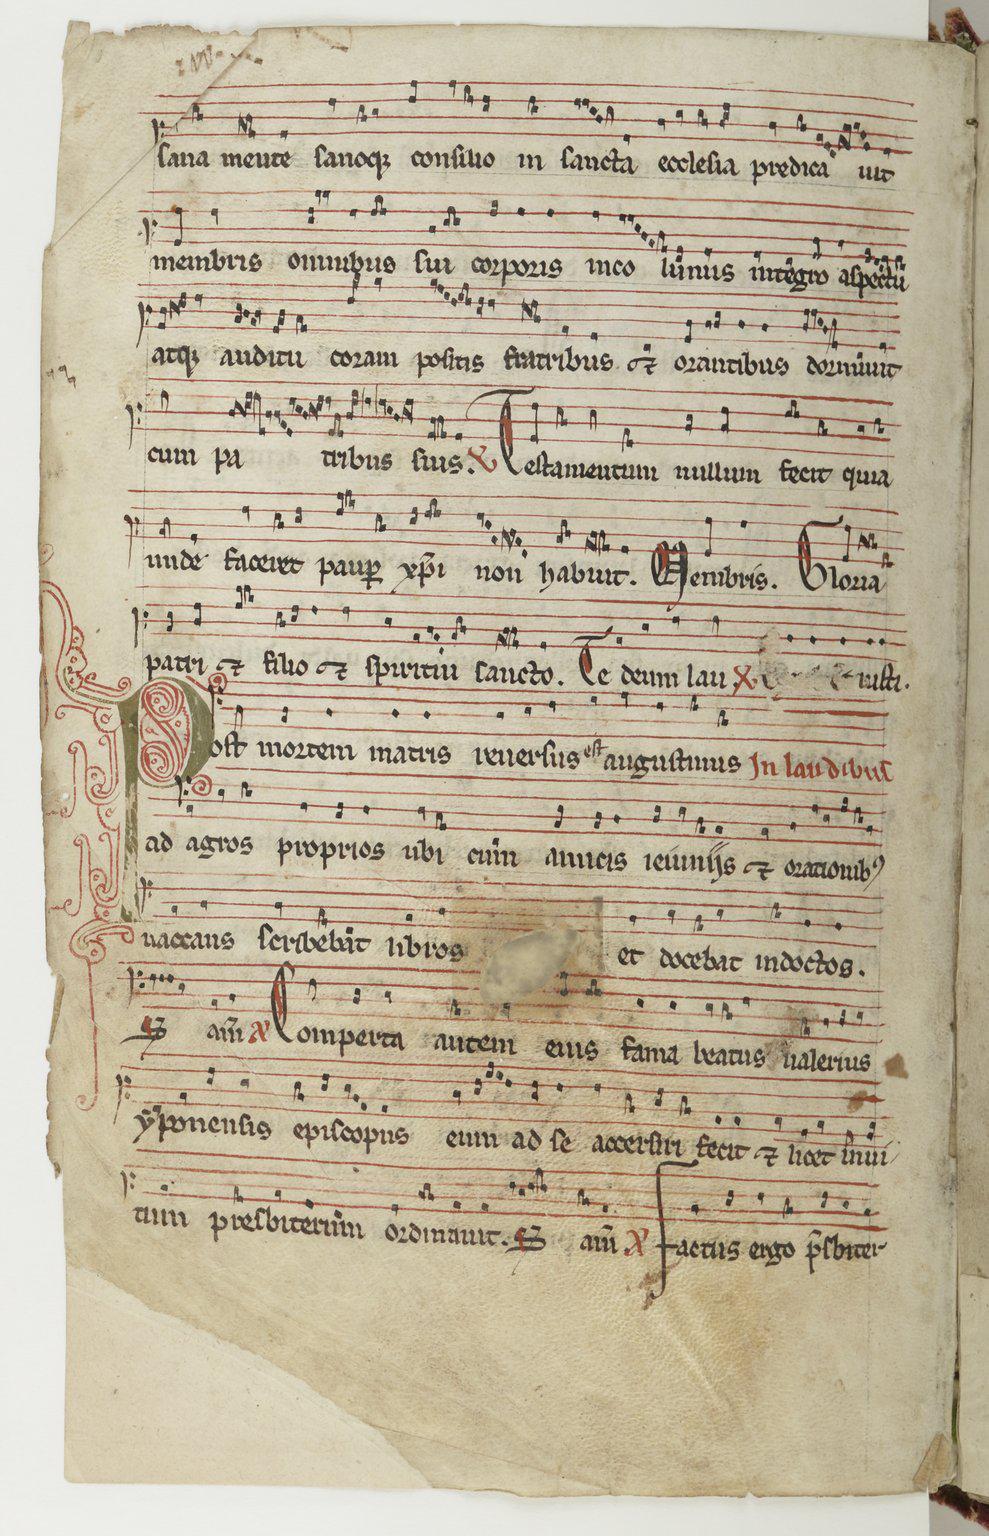 sana mente sanoqꝫ consilio in sancta ecclesia predica uit
membris omnibus sui corporis inco lumis integro aspectu
atqꝫ auditu coram positis fratribus ⁊ orantibus dormiuit
cum pa tribus suis. ℣ Testamentum nullum fecit quia
unde faceret pauꝑ xp̄i non habuit. Membris. Gloria
patri ⁊ filio ⁊ spiritui sancto. Te deum lau ℣
Post mortem matris reuersus est augustinus In laudibus
ad agros proprios ubi cum amicis ieiuniis ⁊ orationibꝰ
uaccans scribebat libros et docebat indoctos.
am̄ Comperta autem eius fama beatus ualerius
yponensis episcopus eum ad se accersiri fecit ⁊ licet inui
tum presbiterum ordinauit. am̄ Factus ergo p̄sbiter